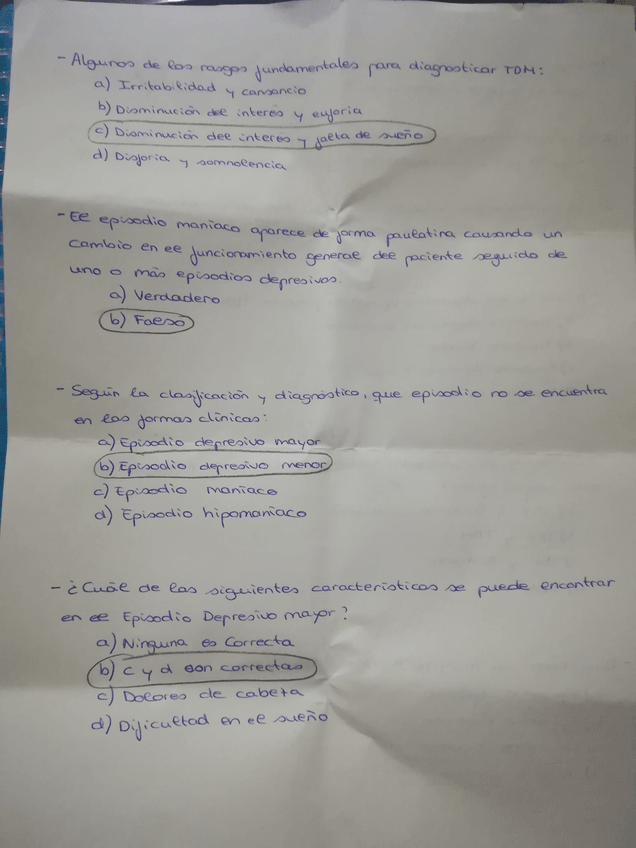 - Algunos de los rasgos fundamentales para diagnosticar TDM:
a) Irritabilidad y cansancio
b) Disminución del interes y euforia
c) Disminución del interes y falta de sueño
d) Disforia y somnolencia
- El episodio maníaco aparece de forma paulatina causando un
cambio en el funcionamiento general del paciente seguido de
uno o más episodios depresivos.
a) Verdadero
b) Falso
- Según la clasificación y diagnóstico, que episodio no se encuentra
en las formas clínicas:
a) Episodio depresivo mayor
b) Episodio depresivo menor
c) Episodio maníaco
d) Episodio hipomaníaco
- ¿Cuál de las siguientes características se puede encontrar
en el Episodio Depresivo mayor?
a) Ninguna es Correcta
b) c y d son correctas
c) Dolores de cabeza
d) Dificultad en el sueño